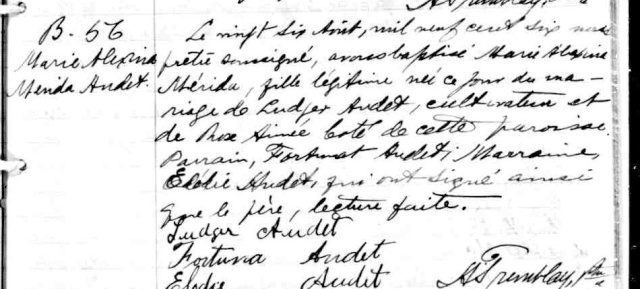 B-56
Marie Alexina
Mérida Audet.
Le vingt six Août, mil neuf cent six nous
prêtre soussigné, avons baptisé Marie Alexina
Mérida, fille légitime née ce jour du ma-
riage de Ludger Audet, cultivateur et
de Rose Aimée Coté de cette paroisse.
Parrain, Fortunat Audet; Marraine,
Elodie Audet, qui ont signé ainsi
que le père, lecture faite.
Ludger Audet
Fortuna Audet
Elodie Audet
Tremblay, Ptre